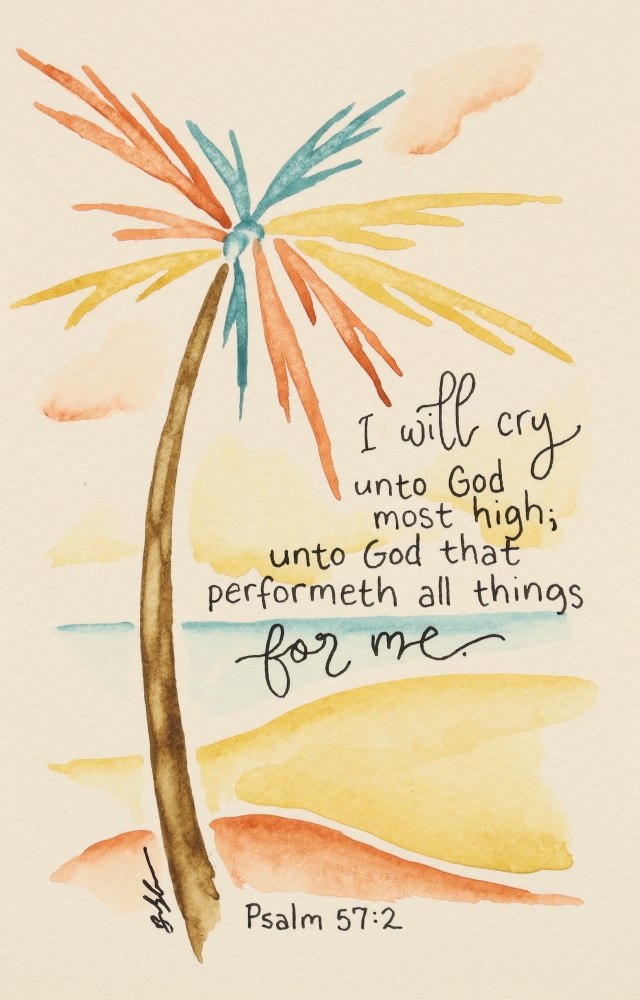 I will cry
unto God
most high;
unto God that
performeth all things
for me.
Psalm 57:2